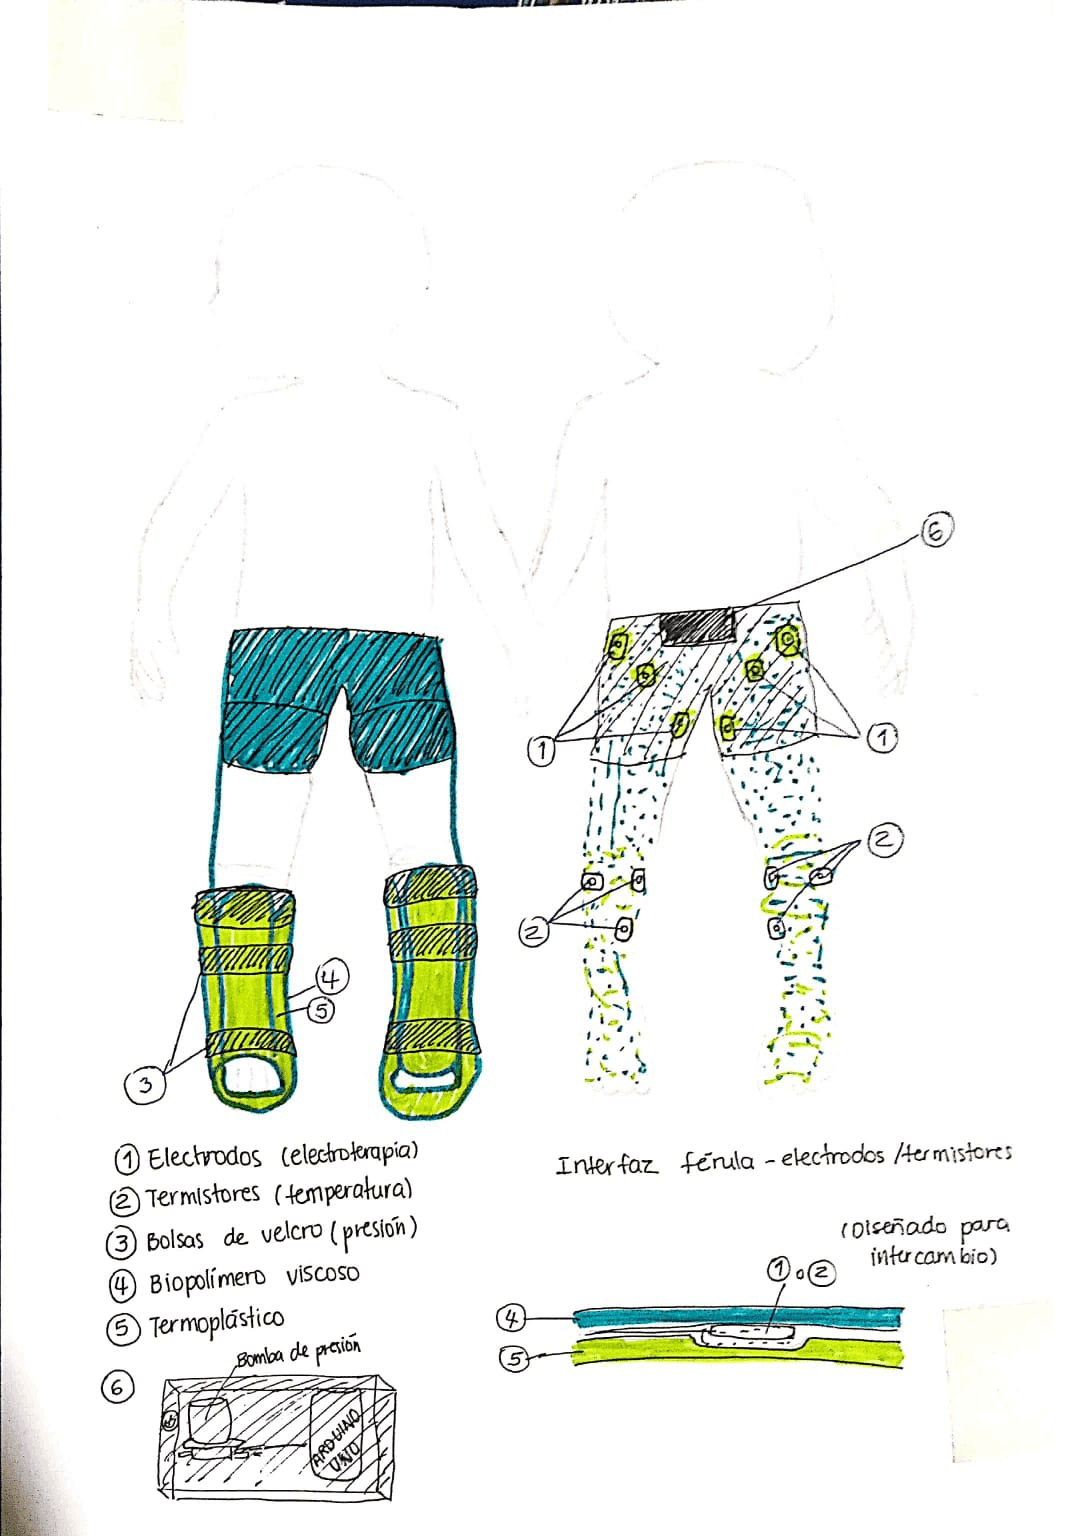 6
1
1
2
2
4
5
3
1 Electrodos (electroterapia)
2 Termistores (temperatura)
3 Bolsas de velcro (presión)
4 Biopolímero viscoso
5 Termoplástico
6
Bomba de presión
ARDUINO
UNO
Interfaz férula - electrodos /termistores
(Diseñado para
intercambio)
1 o 2
4
5